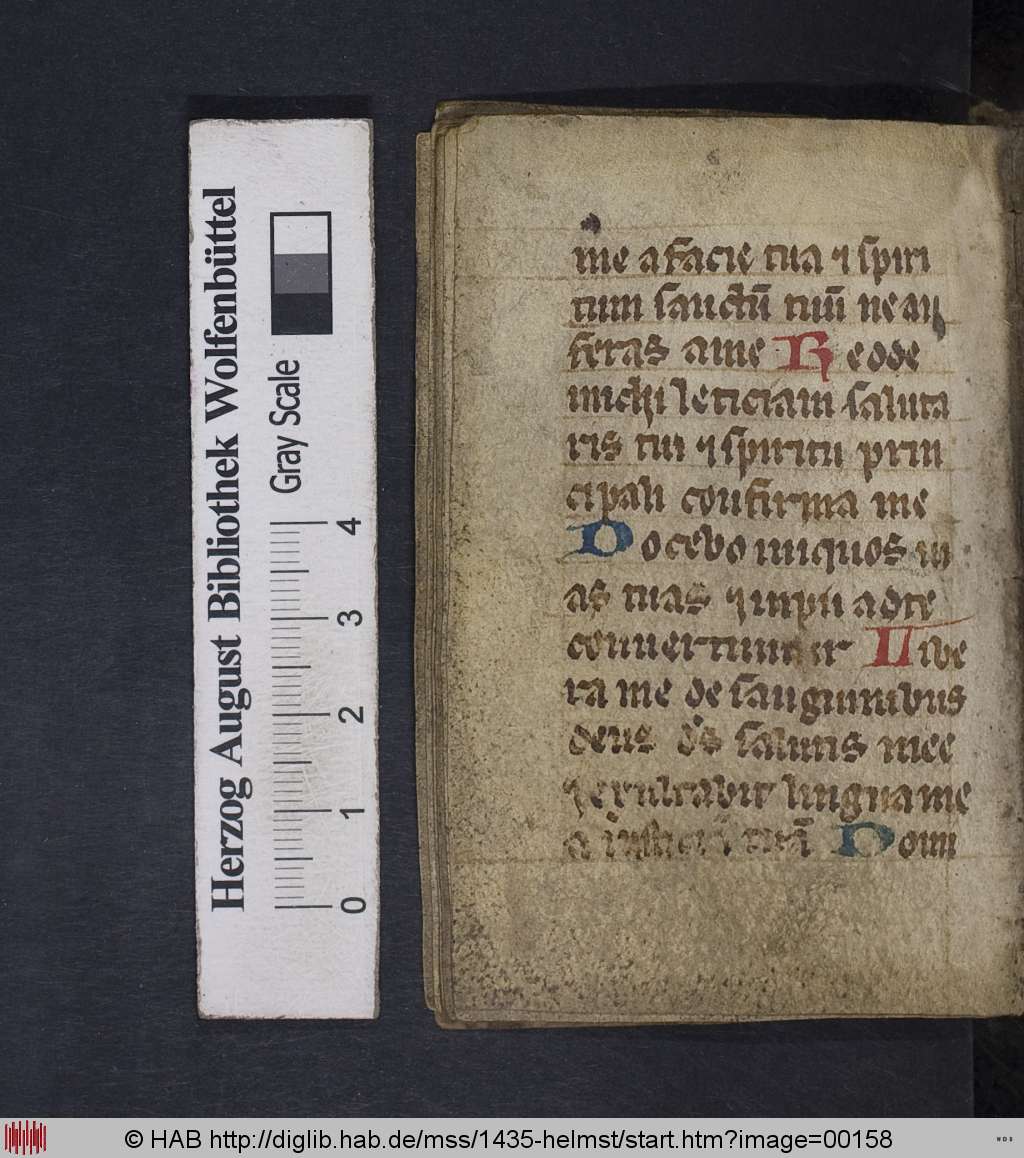 Herzog August Bibliothek Wolfenbüttel
Gray Scale
0 1 2 3 4
me a facie tua ⁊ spiri
tum sanctū tuū ne au
feras a me Redde
michi leticiam saluta
ris tui ⁊ spiritu prin
cipali confirma me
Docebo iniquos ui
as tuas ⁊ inpii ad te
conuertuntur Libe
ra me de sanguinibus
deus ds̄ salutis mee
⁊ exultabit lingua me
a tuā Domi
© HAB http://diglib.hab.de/mss/1435-helmst/start.htm?image=00158